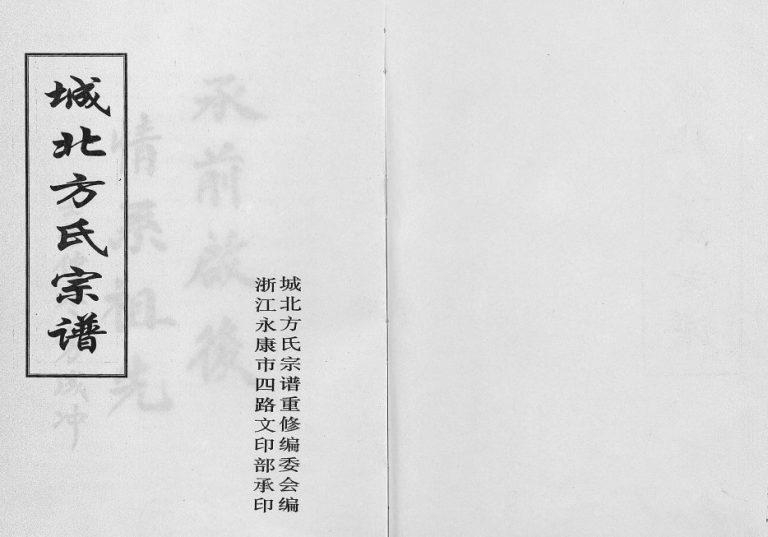 城北方氏宗谱
城北方氏宗谱重修编委会编
浙江永康市四路文印部承印
承前啟後
情系祖先